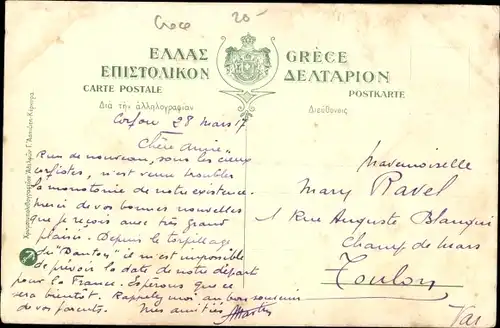 Grèce 20-
ΕΛΛΑΣ GRÈCE
ΕΠΙΣΤΟΛΙΚΟΝ ΔΕΛΤΑΡΙΟΝ
CARTE POSTALE POSTKARTE
Διὰ τὴν ἀλληλογραφίαν Διεύθυνσις
Corfou 28 mars 17
Chère amie -
Rien de nouveau, sous les cieux
corfiotes, n'est venu troubler
la monotonie de notre existence.
Merci de vos bonnes nouvelles
que je reçois avec très grand
plaisir. Depuis le torpillage
du "Danton", il m'est impossible
de prévoir la date de notre départ
pour la France. Espérons que ce
sera bientôt. Rappelez moi au bon souvenir
de vos parents. Mes amitiés
Mademoiselle
Mary Ravel
1 Rue Auguste Blanqui
Champ de Mars
Toulon
Var